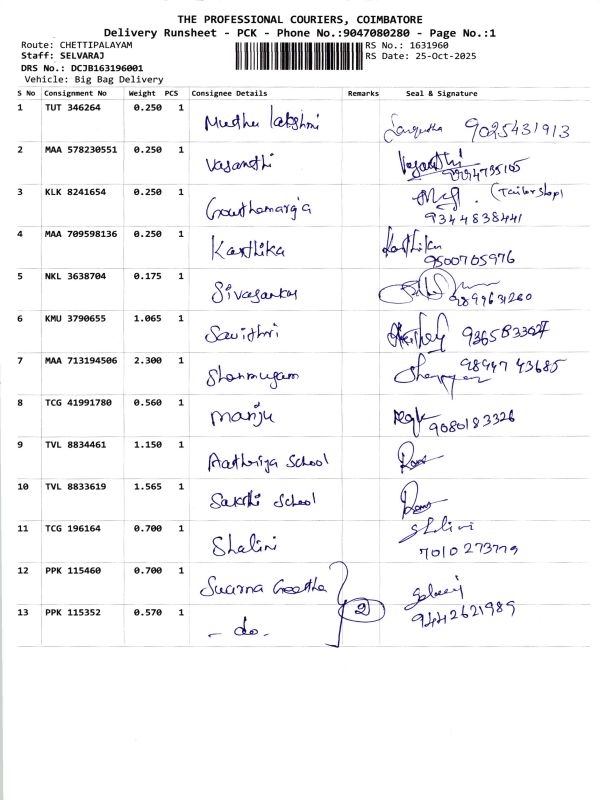 THE PROFESSIONAL COURIERS, COIMBATORE
Delivery Runsheet - PCK - Phone No.:9047080280 - Page No.:1
Route: CHETTIPALAYAM RS No.: 1631960
Staff: SELVARAJ RS Date: 25-Oct-2025
DRS No.: DCJB163196001
Vehicle: Big Bag Delivery
S No Consignment No Weight PCS Consignee Details Remarks Seal & Signature
1 TUT 346264 0.250 1 Muthu lakshmi 9025431913
2 MAA 578230551 0.250 1 Vasanthi Vasanthi
3 KLK 8241654 0.250 1 (Tailor shop)
9344838441
4 MAA 709598136 0.250 1 Karthika Karthika
9500705976
5 NKL 3638704 0.175 1 Sivasankar
9899631260
6 KMU 3790655 1.065 1 Savithri
7 MAA 713194506 2.300 1 Shanmugam 98947 43685
8 TCG 41991780 0.560 1 Manju
9080183326
9 TVL 8834461 1.150 1 School
10 TVL 8833619 1.565 1 Sakthi School
11 TCG 196164 0.700 1 Shalini Shalini
7010273779
12 PPK 115460 0.700 1 Suarna Geetha
13 PPK 115352 0.570 1 - do - 2 9442621989